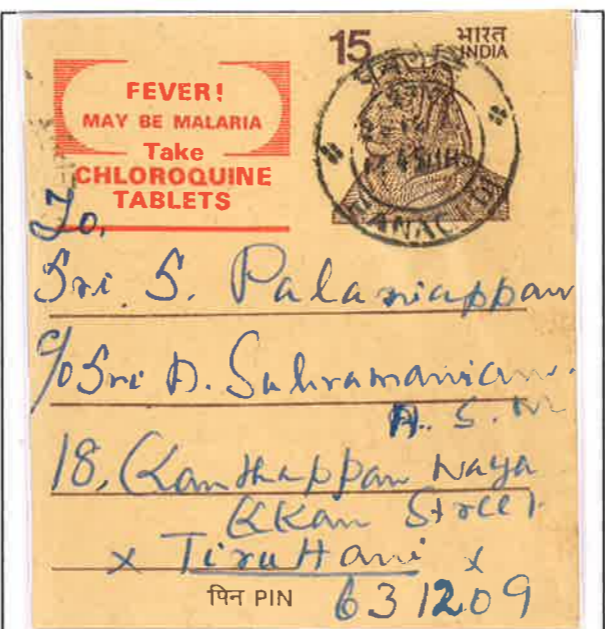 15
भारत
INDIA
FEVER!
MAY BE MALARIA
Take
CHLOROQUINE
TABLETS
To,
Sri. S. Palaniappan
c/o Sri A. Subramanian.
A. S. M
18, Kanthappan Naya
kkan Street
x Tiruttani x
पिन PIN 631209